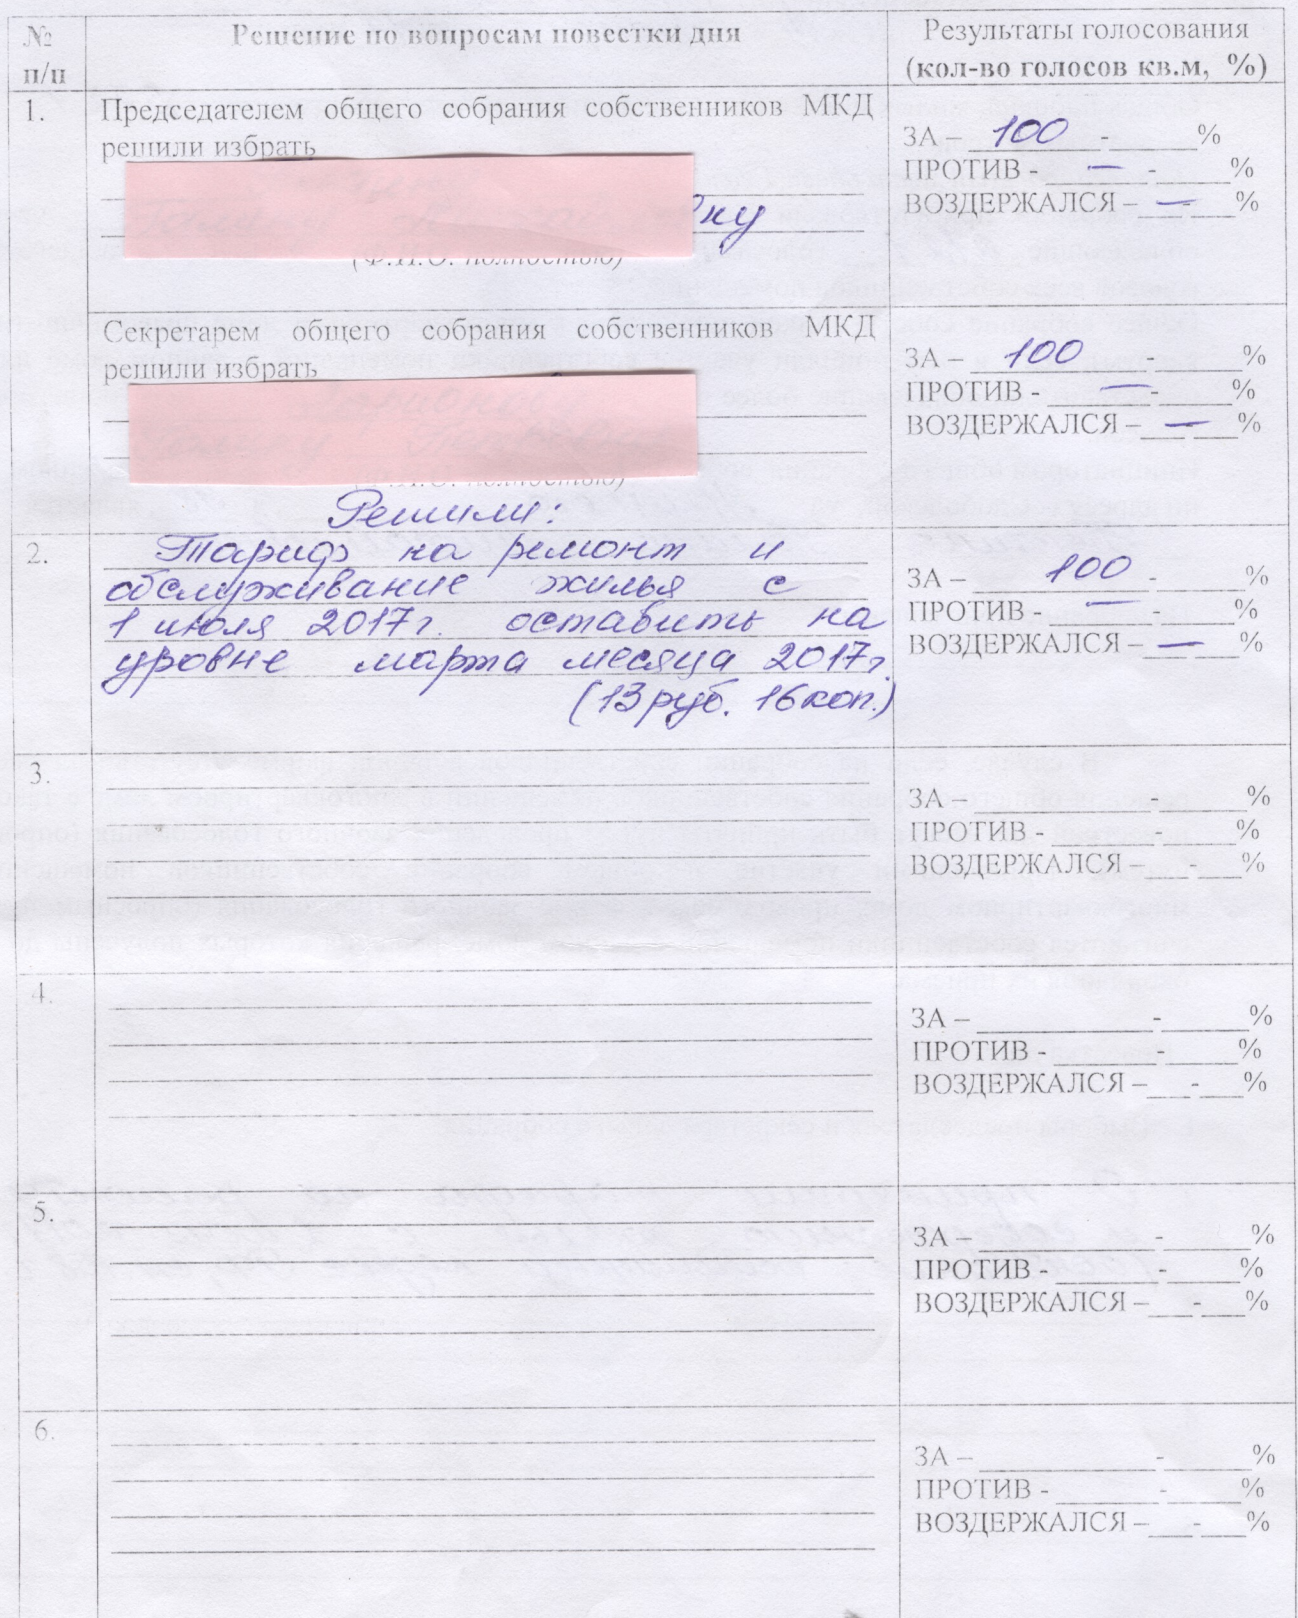 № п/п
Решение по вопросам повестки дня
Результаты голосования
(кол-во голосов кв.м, %)
1.
Председателем общего собрания собственников МКД
решили избрать
ку
(Ф.И.О. полностью)
ЗА – 100 -______%
ПРОТИВ - — -______%
ВОЗДЕРЖАЛСЯ – — -___%
Секретарем общего собрания собственников МКД
решили избрать
(Ф.И.О. полностью)
ЗА – 100 -______%
ПРОТИВ - — -______%
ВОЗДЕРЖАЛСЯ – — -___%
Решили:
2.
Тариф на ремонт и
обслуживание жилья с
1 июля 2017г. оставить на
уровне марта месяца 2017г.
(13 руб. 16 коп.)
ЗА – 100 -______%
ПРОТИВ - — -______%
ВОЗДЕРЖАЛСЯ – — -___%
3.
ЗА – ____________-______%
ПРОТИВ - ________-______%
ВОЗДЕРЖАЛСЯ – ___-___%
4.
ЗА – ____________-______%
ПРОТИВ - ________-______%
ВОЗДЕРЖАЛСЯ – ___-___%
5.
ЗА – ____________-______%
ПРОТИВ - ________-______%
ВОЗДЕРЖАЛСЯ – ___-___%
6.
ЗА – ____________-______%
ПРОТИВ - ________-______%
ВОЗДЕРЖАЛСЯ – ___-___%